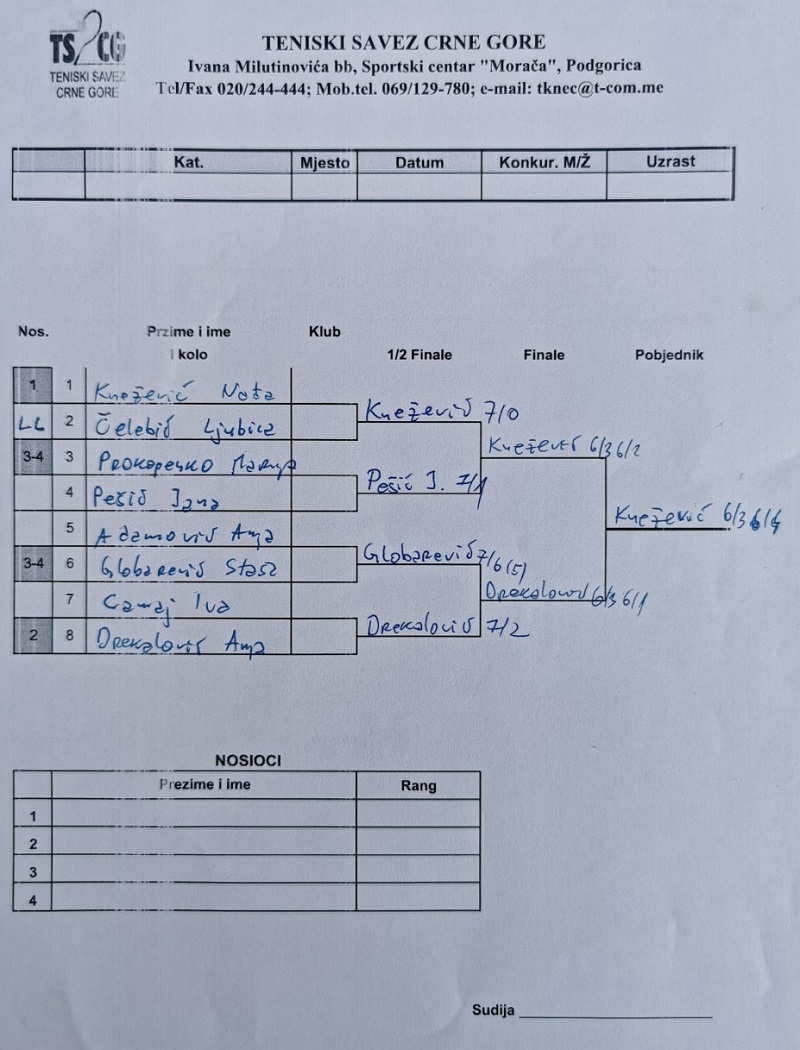 TS CG
TENISKI SAVEZ
CRNE GORE
TENISKI SAVEZ CRNE GORE
Ivana Milutinovića bb, Sportski centar "Morača", Podgorica
Tel/Fax 020/244-444; Mob.tel. 069/129-780; e-mail: tknec@t-com.me
Kat. Mjesto Datum Konkur. M/Ž Uzrast
Nos. Przime i ime Klub
I kolo 1/2 Finale Finale Pobjednik
1 1 Knežević Nađa
Knežević 7/0
LL 2 Čelebić Ljubica
Knežević 6/3 6/2
3-4 3 Prokopenko
4 Pešić Jana
Pešić J. 7/1
Knežević 6/3 6/4
5 Adamović Anja
Globarević 7/6(5)
3-4 6 Globarević Staša
Drekalović 6/3 6/1
7 Camaj Iva
Drekalović 7/2
2 8 Drekalović Anja
NOSIOCI
Prezime i ime Rang
1
2
3
4
Sudija